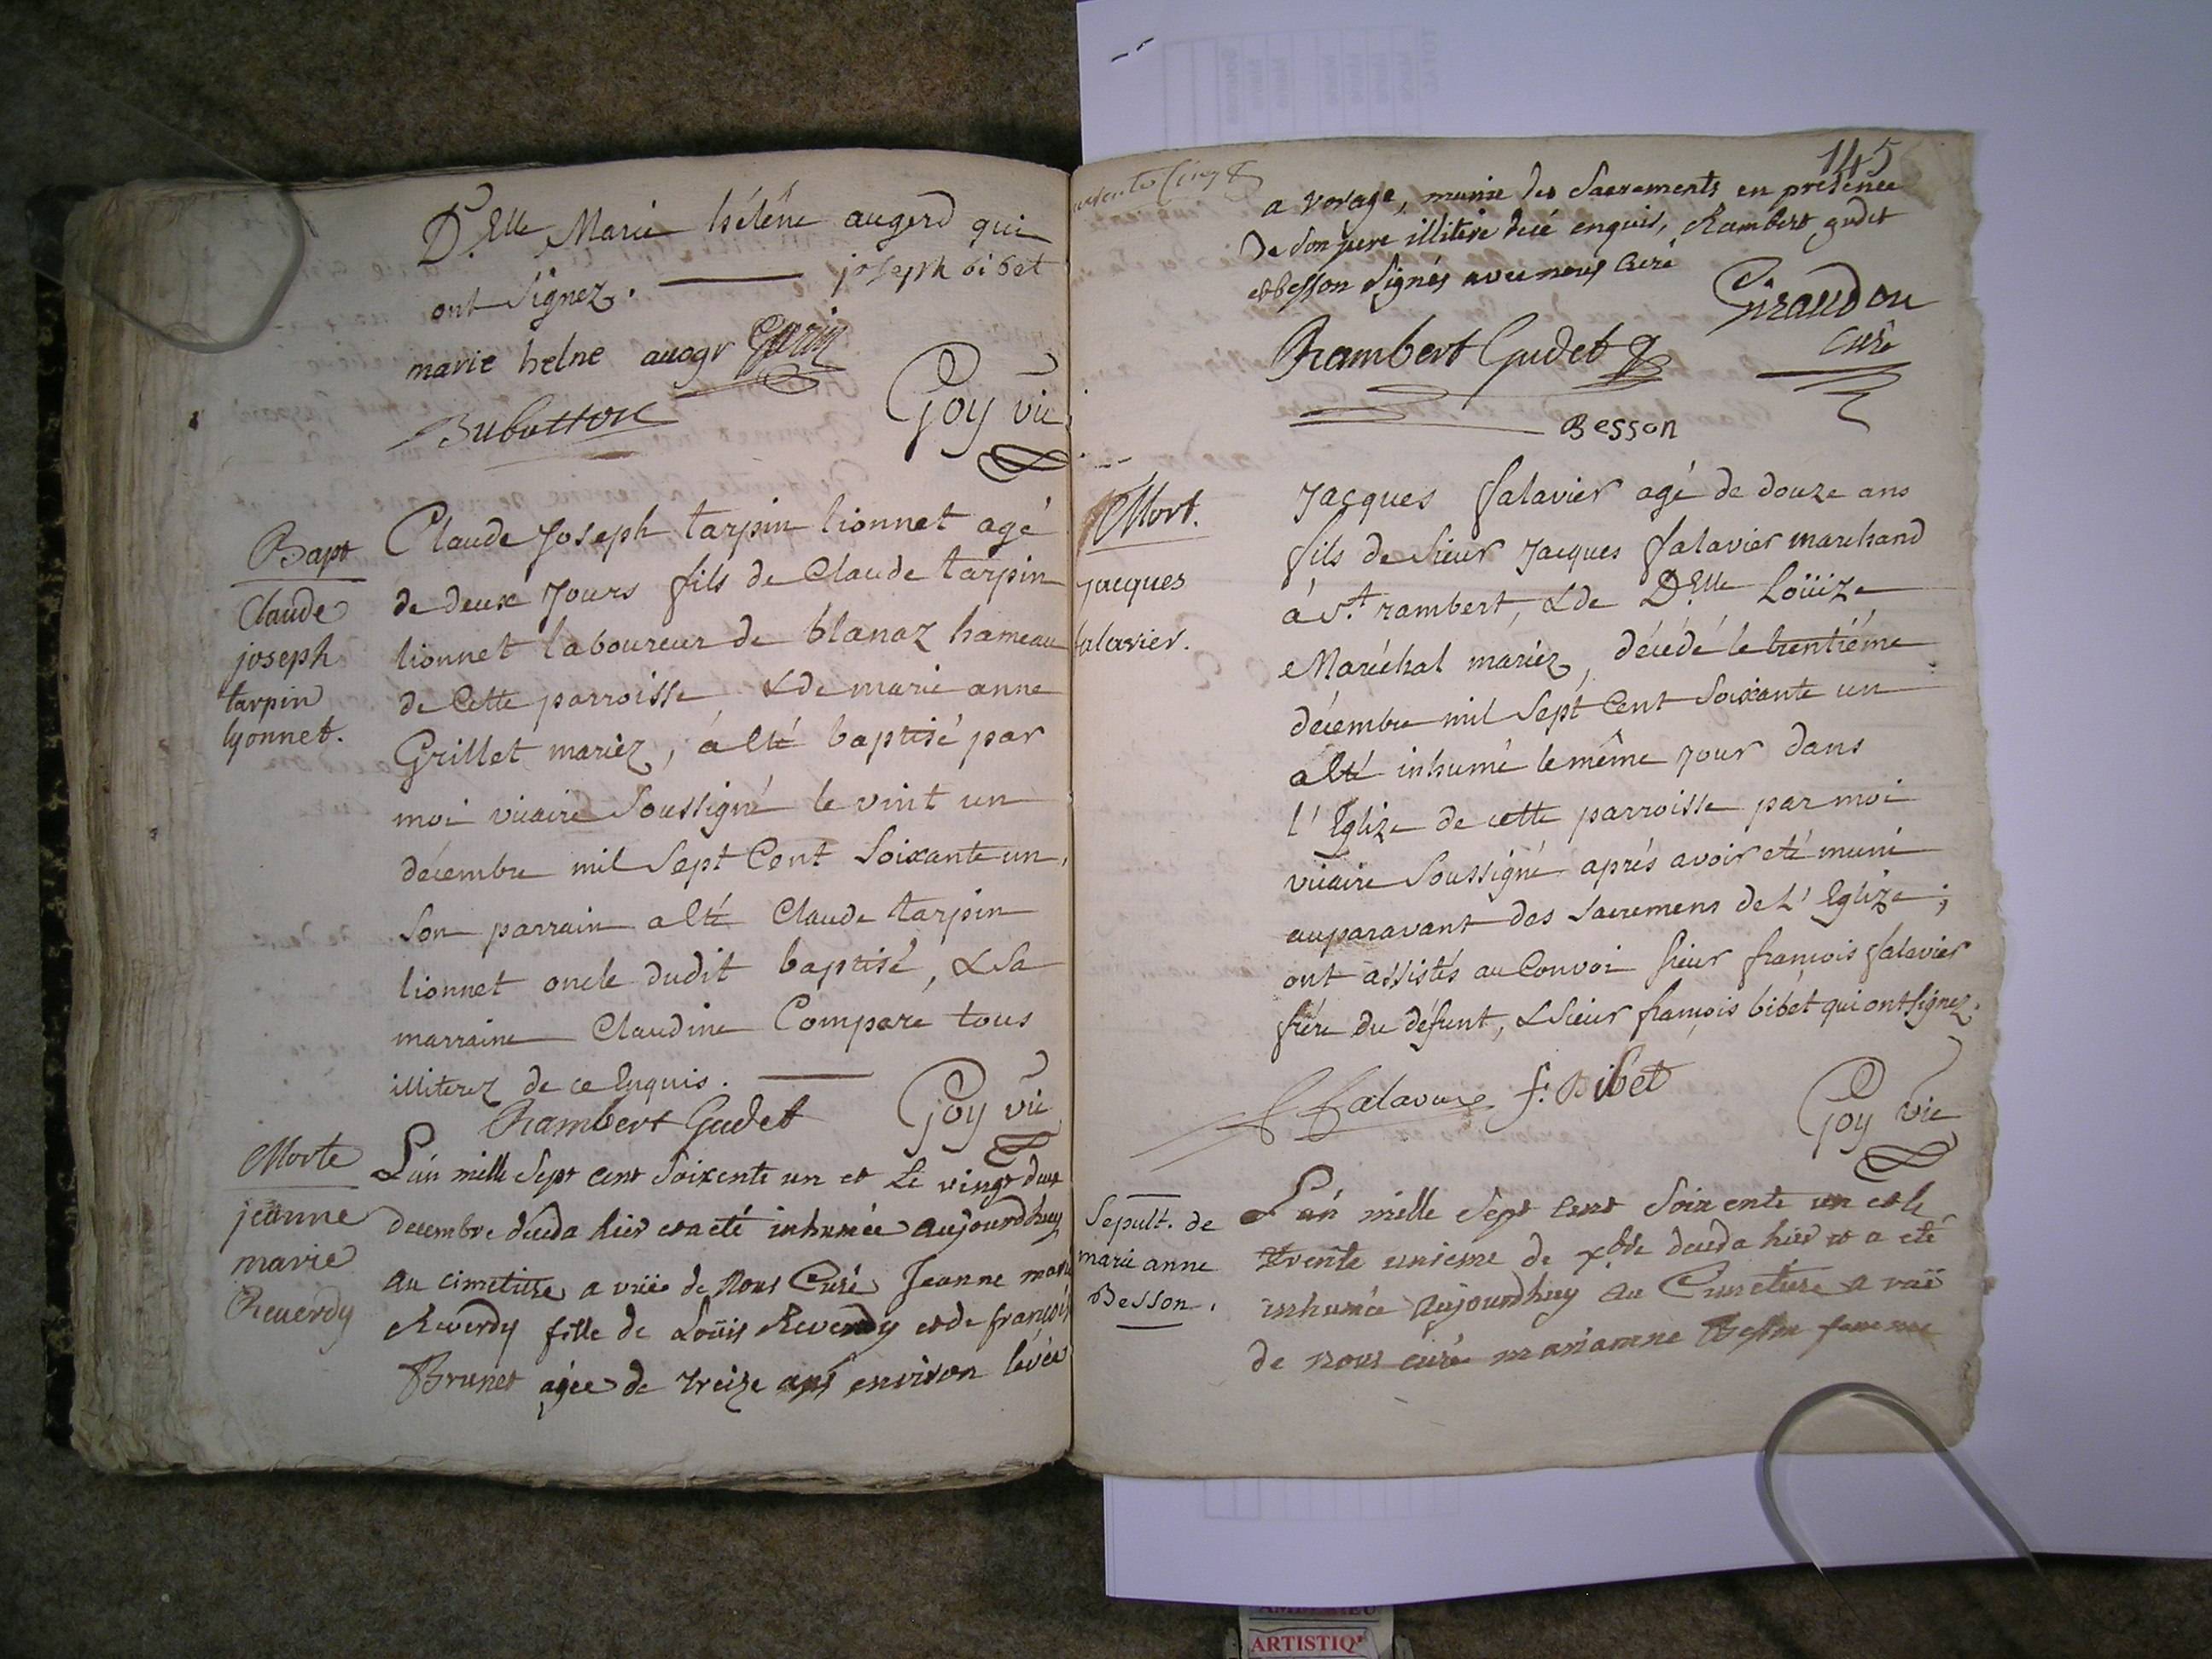 D.elle Marie hélêne augerd qui
ont signez. joseph bibet
marie helne auogr
Bubatton
Goy vic
Bapt
Claude
joseph
tarpin
lyonnet.
Claude Joseph tarpin lionnet agé
de deux jours fils de Claude tarpin
lionnet laboureur de blanaz hameau
de Cette parroisse, & de marie anne
Grillet mariez, á eté baptisé par
moi vicaire soussigné le vint un
décembre mil sept Cent soixante un,
son parrain a eté Claude tarpin
lionnet oncle dudit baptisé, & sa
marraine Claudine Compare tous
illiterez de ce Enquis.
Rambert Gudet
Goy vic
Morte
jeanne
marie
Reuerdy
L'an mille sept cent soixente un et Le vingt deux
decembre deceda hier et a eté inhumée aujourdhuy
au cimetiere a vüe de nous Curé Jeanne marie
Reverdy fille de Loüis Reverdy et de françois
Brunet agée de treize ans environ
145
a vorage, munie des sacrements en présence
de son pere illitere de cé enquis, Rambert gudet
et besson signés avec nous Curé
Giraud
Curé
Rambert Gudet
Besson
Mort.
jacques
falavier.
Jacques falavier agé de douze ans
fils de sieur Jacques falavier marchand
á St. rambert, & de D.elle Loüize
Maréchal mariez, décédé le trentiéme
décembre mil sept Cent soixante un
a eté inhumé le même jour dans
l'Eglize de cette parroisse par moi
vicaire soussigné aprés avoir eté muni
auparavant des sacremens de L'Eglize;
ont assistés au Convoi sieur françois falavier
frére du défunt, & sieur françois bibet qui ont signez.
f. Bibet
Goy vic
Sepult. de
marie anne
Besson.
L'an mille sept cent soixente un et le
trente unieme de xbre deceda hier et a eté
inhumée aujourdhuy au Cimetiere a vuë
de nous curé mariamne Besson femme
ARTISTIQ